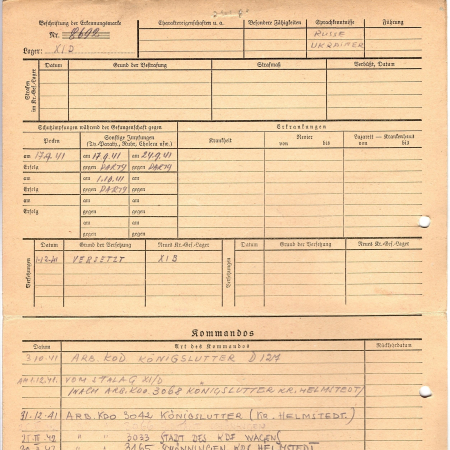 Beschriftung der Erkennungsmarke
Nr. 8692
Lager: XI D
Charaktereigenschaften u. a.
Besondere Fähigkeiten
Sprachkenntnisse
RUSSE
UKRAINER
Führung
Strafen im Kr.-Gef.-Lager
Datum Grund der Bestrafung Strafmaß Verbüßt, Datum
Schutzimpfungen während der Gefangenschaft gegen
Erkrankungen
Pocken
Sonstige Impfungen
(Ty.-Paraty., Ruhr, Cholera usw.)
Krankheit
Revier
von bis
Lazarett — Krankenhaus
von bis
am 17.9.41 am 17.9.41 am 24.9.41
Erfolg gegen PARTY gegen PARTY
am am 1.10.41 am
Erfolg gegen PARTY gegen
am am am
Erfolg gegen gegen
am am
gegen gegen
Versetzungen
Datum Grund der Versetzung Neues Kr.-Gef.-Lager
1.12.41 VERSETZT XI B
Versetzungen
Datum Grund der Versetzung Neues Kr.-Gef.-Lager
Kommandos
Datum Art des Kommandos Rückkehrdatum
3.10.41 ARB. KDO KÖNIGSLUTTER D 127
AM 1.12.41. VOM STALAG XI/D
(NACH ARB. KDO. 3068 KÖNIGSLUTTER KR. HELMSTEDT)
31.12.41 ARB. KDO 3042 KÖNIGSLUTTER (KR. HELMSTEDT.)
42 " " 3033 STADT DES KDF WAGEN
42 " " 3165 SCHÖNNINGEN HELMSTEDT